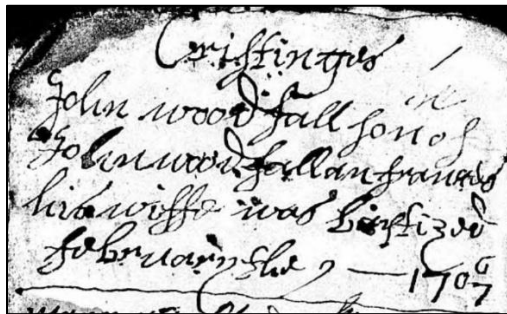 Cristinges
John woodfall son of
John woodfall an frances
his wiffe was baptized
february the 9 — 170 6/7